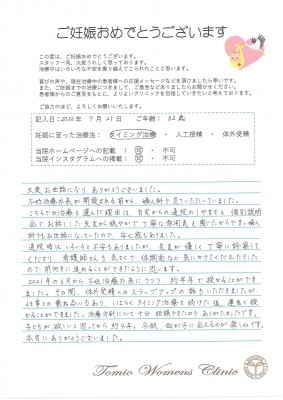 ご妊娠おめでとうございます
この度は、ご妊娠おめでとうございます。
スタッフ一同、大変うれしく思っております。
治療中はいろいろな不安を乗り越えてこられたことと思います。
喜びの声や、現在治療中の患者様への応援メッセージなどを頂けましたら幸いです。
また、ご妊娠までの治療につきまして、ご意見などありましたらお聞かせください。
患者様からのご意見をもとに、よりよいクリニックを目指していきたいと考えております。
ご協力のほど、よろしくお願いいたします。
記入日：2022年 9月21日 ご年齢：32歳
妊娠に至った治療法：タイミング治療・人工授精・体外受精
当院ホームページへの記載：可・不可
当院インスタグラムへの掲載：可・不可
大変お世話になり、ありがとうございました。
不妊治療外来が開設される前から、婦人科で見ていただいていました。
こちらでの治療を選んだ理由は、自宅からの通院のしやすさと、個別説明
会でお話しした先生から穏やかで丁寧な雰囲気と感じたからです。婦人
科でもお世話になっていたので、安心感もありました。
通院時は、いろいろと不安もありましたが、先生が優しく丁寧に診察して
くださり、看護師さんも笑顔で、体調面など気にかけてくださったりした
ので前向きに進めることができたように思います。
2021年の6月から不妊治療外来にうつり、約半年で授かることができ
ました。その間、体外受精へのステップアップの話もいただきましたが
仕事との兼ね合いもあり、しばらくタイミング治療を続けた後、運良く授
かることができました。治療方針について十分相談できたのもありがたかったです。
子どもが欲しいと思ってから約4年。今秋、我が子に会えるのが楽しみです。
本当にありがとうございました。
Tomio Womens Clinic